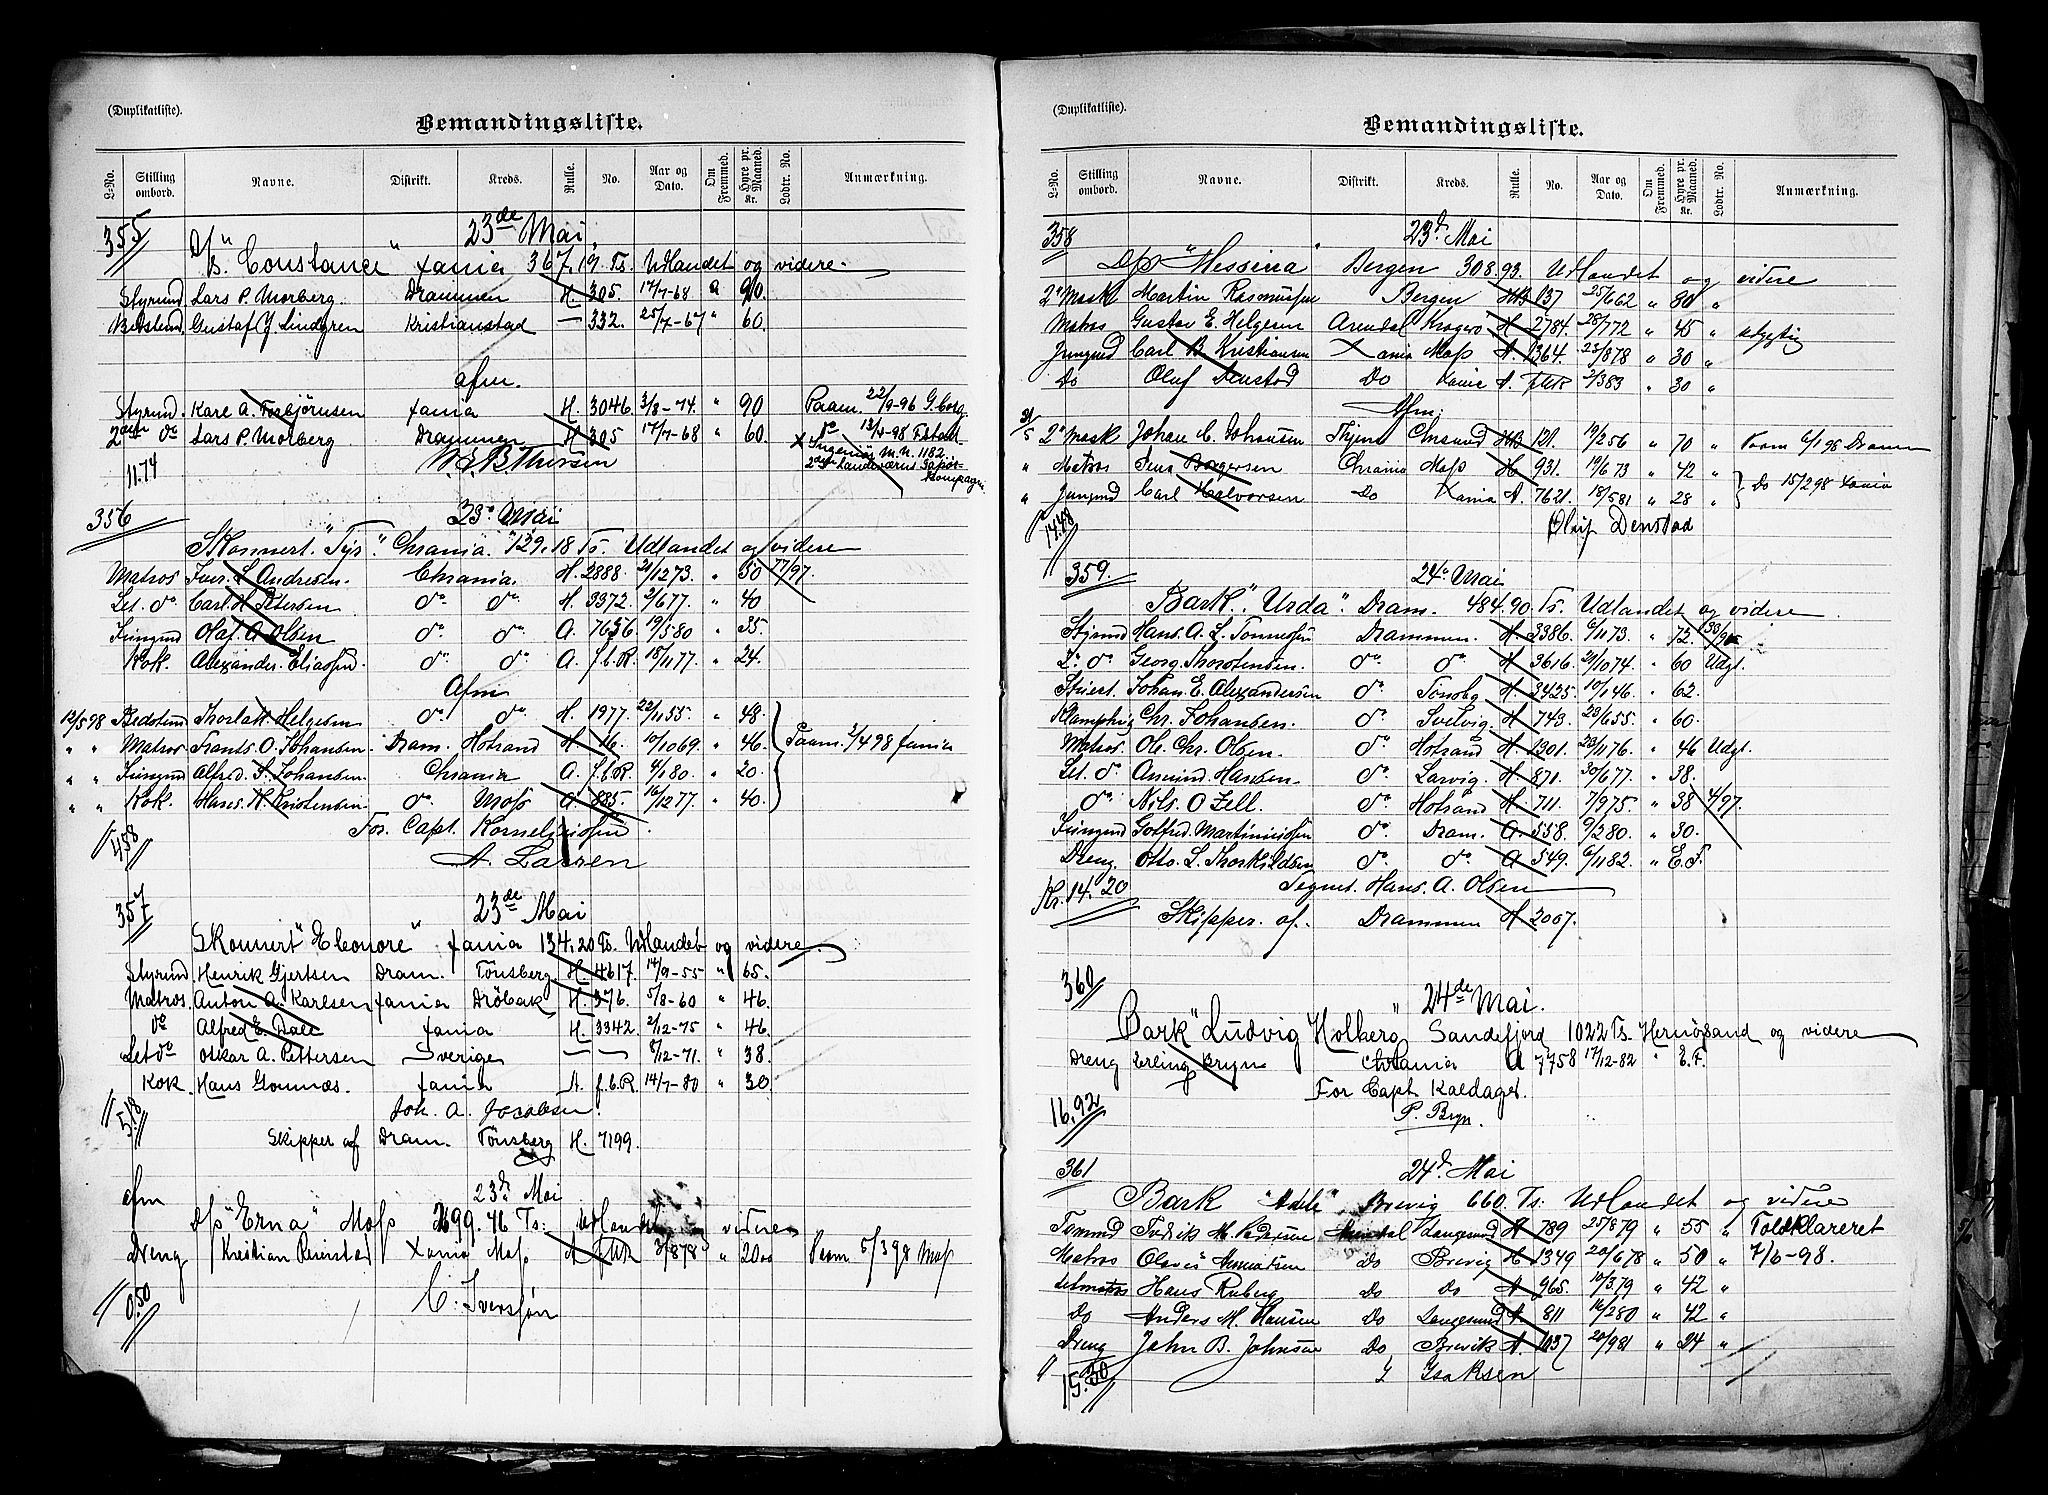 (Duplikatliste).
Bemandingsliste.
L-No. Stilling ombord. Navne. Distrikt. Kreds. Rulle. No. Aar og Dato. Om Fremmed. Hyre pr. Maaned. Kr. Lodtr. No. Anmærkning.
355 23de Mai
D/S. "Constance" Xania 367.19. Ts. Udlandet og videre.
Styrmd. Lars P. Morberg. Drammen H. 305. 17/7-68 " 90.
Bedstmd. Gustaf Y Lindgren Kristianstad — 332. 25/7-67 " 60.
Afm.
Styrmd. Karl A. Torbjörnsen Xania H. 3046. 3/8-74. " 90 Paam. 22/9-96 G.borg.
2den do Lars P. Morberg Drammen H 305 17/7-68 " 60. do 13/6-98
11.74 Ingeniör M.N. 1182.
2den Landeværns Sapør-
Kompagni
356 23de Mai
Skonnert. "Tyr". Chrania. 129.18 Ts. Udlandet og videre
Matros. Iver. L. Andresen. Chrania. H. 2888. 21/12 73. " 50 77/97.
Let. do. Carl. H. Petersen do. do. H. 3372. 2/6 77. " 40
Jungmd Olaf. A. Olsen do. do. A. 7656 19/5 80 " 35.
Kok. Alexander. Eliassen. do. do. A. f.b.R. 18/11 77. " 24.
Afm
12/5 98 Bedstmd Thorlak. Helgesen do. do. H. 1977. 22/11 55. " 48.
" " Matros. Frants. O. Johansen. Dram. Holsand H 16. 10/10 69. " 46. Paam. 4/4 98 Xania
" " Jungmd Alfred. S. Johansen. Chrania A. f.b.R. 4/1 80. " 20.
" " Kok. Hans. H. Kristensen do. Moss A. 885. 16/12 77. " 40.
4.58 For. Capt. Korneliussen.
A. Larsen
357 23de Mai
Skonnert "Eleonore" Xania 134.20 Ts. Udlandet og videre.
Styrmd. Henrik Gjertsen Dram. Tönsberg H. 4617. 14/9-55 " 65.
Matros. Anton A. Karlsen Xania Dröbak H. 376. 5/8-60 " 46.
do Alfred E. Dale Xania H. 3342. 2/12-75 " 46.
Let do Oskar A. Pettersen Sverige — — 8/12-71. " 38.
Kok Hans Gonnæs. Xania A. f.b.R. 14/7-80 " 30.
5.18 Joh. A. Jacobsen.
Skipper af Dram. Tönsberg H. 7199.
Afm 23d. Mai
D/S "Erna" Moss 299.46 Ts: Udlandet videre
Dreng Kristian Reinstad Xania Moss A fbR 3/8 78 " 20 00 Paam 5/3 98 Moss
0.50 C. Iversen
(Duplikatliste).
Bemandingsliste.
L-No. Stilling ombord. Navne. Distrikt. Kreds. Rulle. No. Aar og Dato. Om Fremmed. Hyre pr. Maaned. Kr. Lodtr. No. Anmærkning.
358 23d. Mai
D/S "Messina" Bergen 308.93. Udlandet og videre
2. Mask Martin Rasmussen Bergen HB 137 25/6 62 " 80 "
Matros Gustav E. Helgesen Arendal Kragerø H 2784. 28/7 72 " 45 " udgyldig
Jungmd Carl B. Kristiansen Xania Moss A. 1364. 23/8 78 " 30 "
Do Oluf Denstad Do Xania A. fbR 2/3 83 " 30 "
Afm:
31/5 2. Mask Johan C. Johansen Thjem Chrsund HB 121. 19/2 56 " 70 " Paam 6/1 98 Dramen
" Matros Jens Borgersen Chrania Moss H 931. 19/6 73 " 42 "
" Jungmd Carl Halvorsen Do Xania A. 7621. 18/5 81 " 28 " Do 15/2 98 Xania
14.48 Oluf Denstad
359. 24de Mai
Bark. "Urda". Dram. 484.90. Ts. Udlandet og videre
Styrmd Hans. A. L. Tønnessen Drammen. H 3386. 6/11 73 " 72. 133/95
2. do. Georg. Thorstensen. do. do. H 3616. 29/10 74. " 60 Udgt.
Stuert. Johan. E. Alexandersen do. Tønsbg H 3425. 10/1 46. " 62.
Chr. Johansen. do. Svelvig. H 743. 23/6 55. " 60.
Matros. Ol. Chr. Olsen. do. Holsand H 1301. 23/11 76. " 46 Udgt.
Let. do. Amund. Hansen do. Larvig. H 871. 30/6 77. " 38.
do. Nils. O Zell. do. Holsand H 711. 7/9 75. " 38 4/97.
Jungmd Gotfred. Martiniussen do. Dram. A. 558. 9/2 80. " 30.
Dreng Otto. L. Thorkildsen do. do. A 549. 6/11 82. " E. F.
Kr. 14.20 Tegnet. Hans. A. Olsen
Skipper. af. Drammen H 2067.
360 24de Mai.
Bark "Ludvig Holberg" Sandefjord 1022 Ts. Hernøsand og videre
Dreng Erling Bryn Chrania A 7758 17/12-82 " E. F.
For Capt Kaldager.
16.92 P. Bryn.
361 24d. Mai
Bark "Adele" Brevig 660. Ts: Udlandet og videre
Tømmd Fredrik M. Pedersen Arendal Langesund H 789 25/8 79 " 55 " Toldklareret
Matros Olavs Amundsen Do Brevig H 1349 20/6 78 " 50 " 7/6-98.
Letmatros Hans Ruberg Do Do A 965. 10/3 79 " 42 "
Do Anders M. Hansen Do Langesund A 811 16/2 80 " 42 "
Dreng John B. Johnsen Do Brevik A. 1037 20/9 81 " 24 "
15.30 J Isaksen